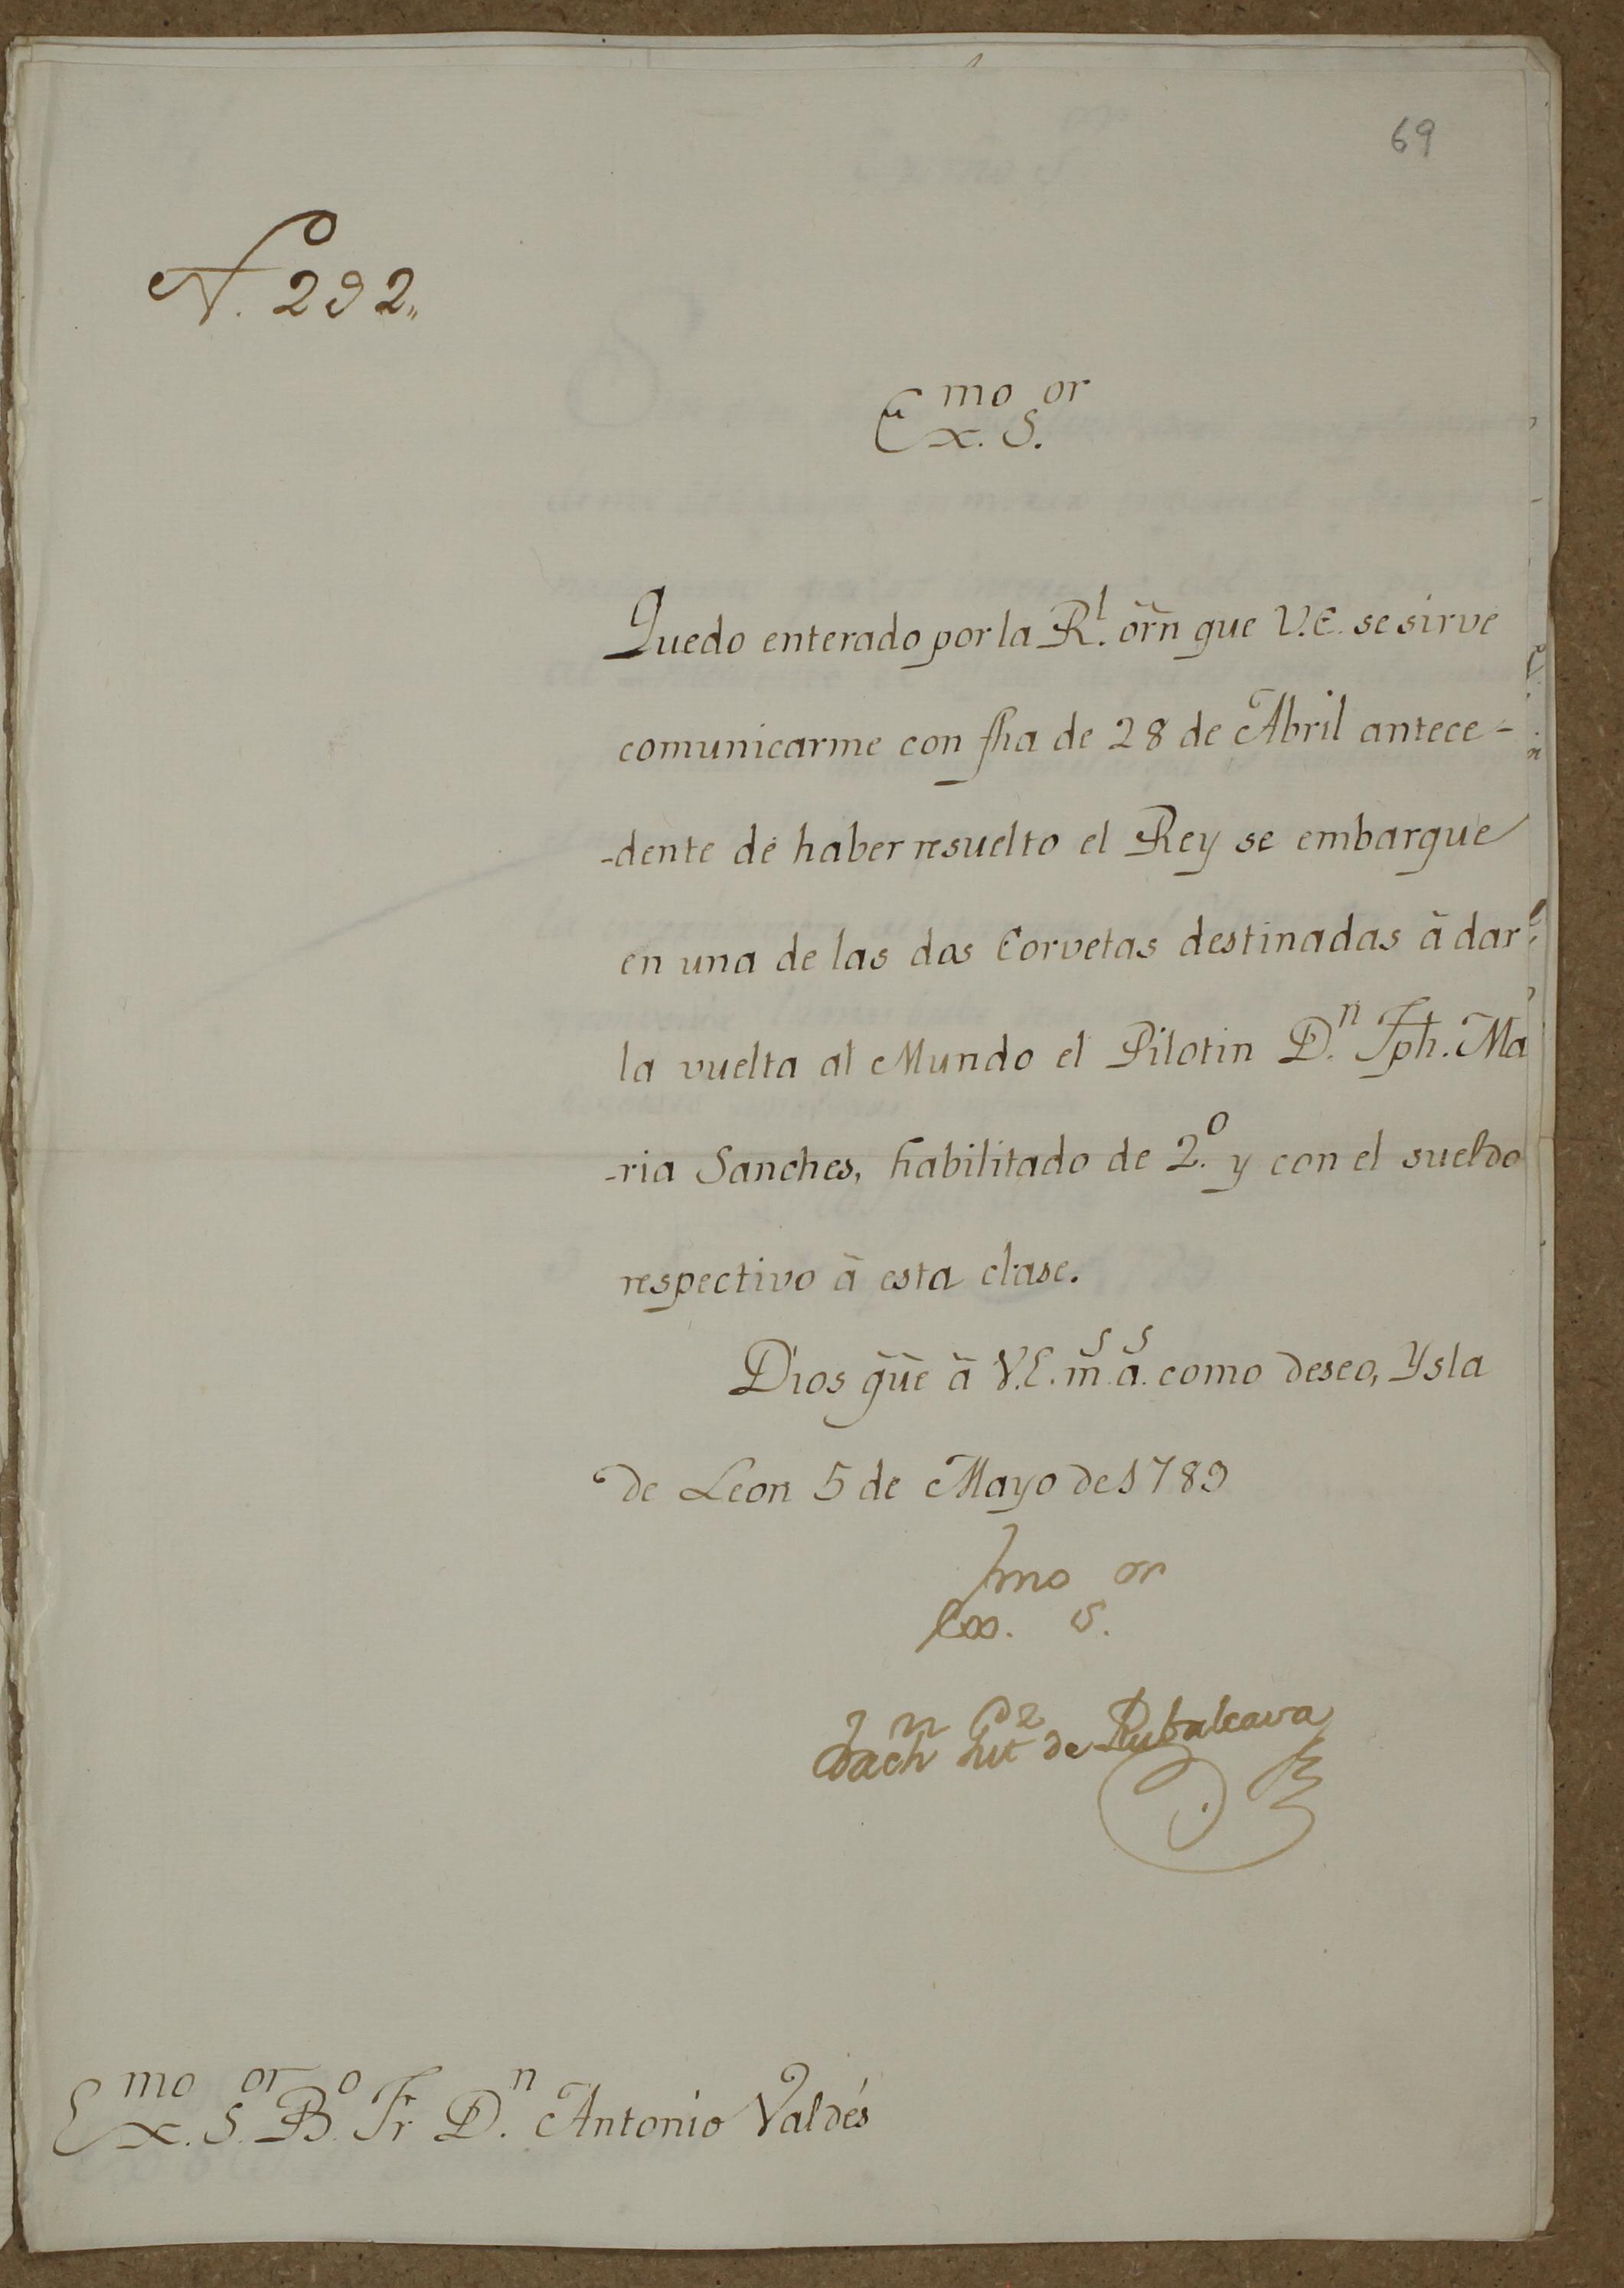 69
N. 292,,
Ex.mo S.or
Quedo enterado por la R.l õrn que V.E. se sirve
comunicarme con fha de 28 de Abril antece-
-dente de haber resuelto el Rey se embarque
en una de las dos Corvetas destinadas à dar
la vuelta al Mundo el Pilotin D.n Jph. Ma
-ria Sanches, habilitado de 2.o y con el sueldo
respectivo à esta clase.
Dios gũe à V.E. m.s a.s como deseo, Ysla
de Leon 5 de Mayo de 1789
Ex.mo S.or
de Rubalcava
Ex.mo S.or B.o Fr D.n Antonio Valdés